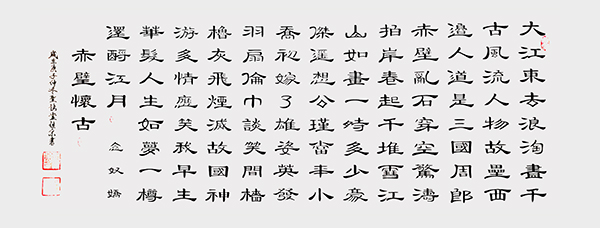 大江東去浪淘盡千
古風流人物故壘西
邊人道是三國周郎
赤壁亂石穿空驚濤
拍岸卷起千堆雪江
山如畫一時多少豪
傑遥想公瑾當年小
喬初嫁了雄姿英發
羽扇綸巾談笑間檣
櫓灰飛煙滅故國神
游多情應笑我早生
華髮人生如夢一樽
還酹江月 念奴嬌
赤壁懷古
歲在庚子仲冬